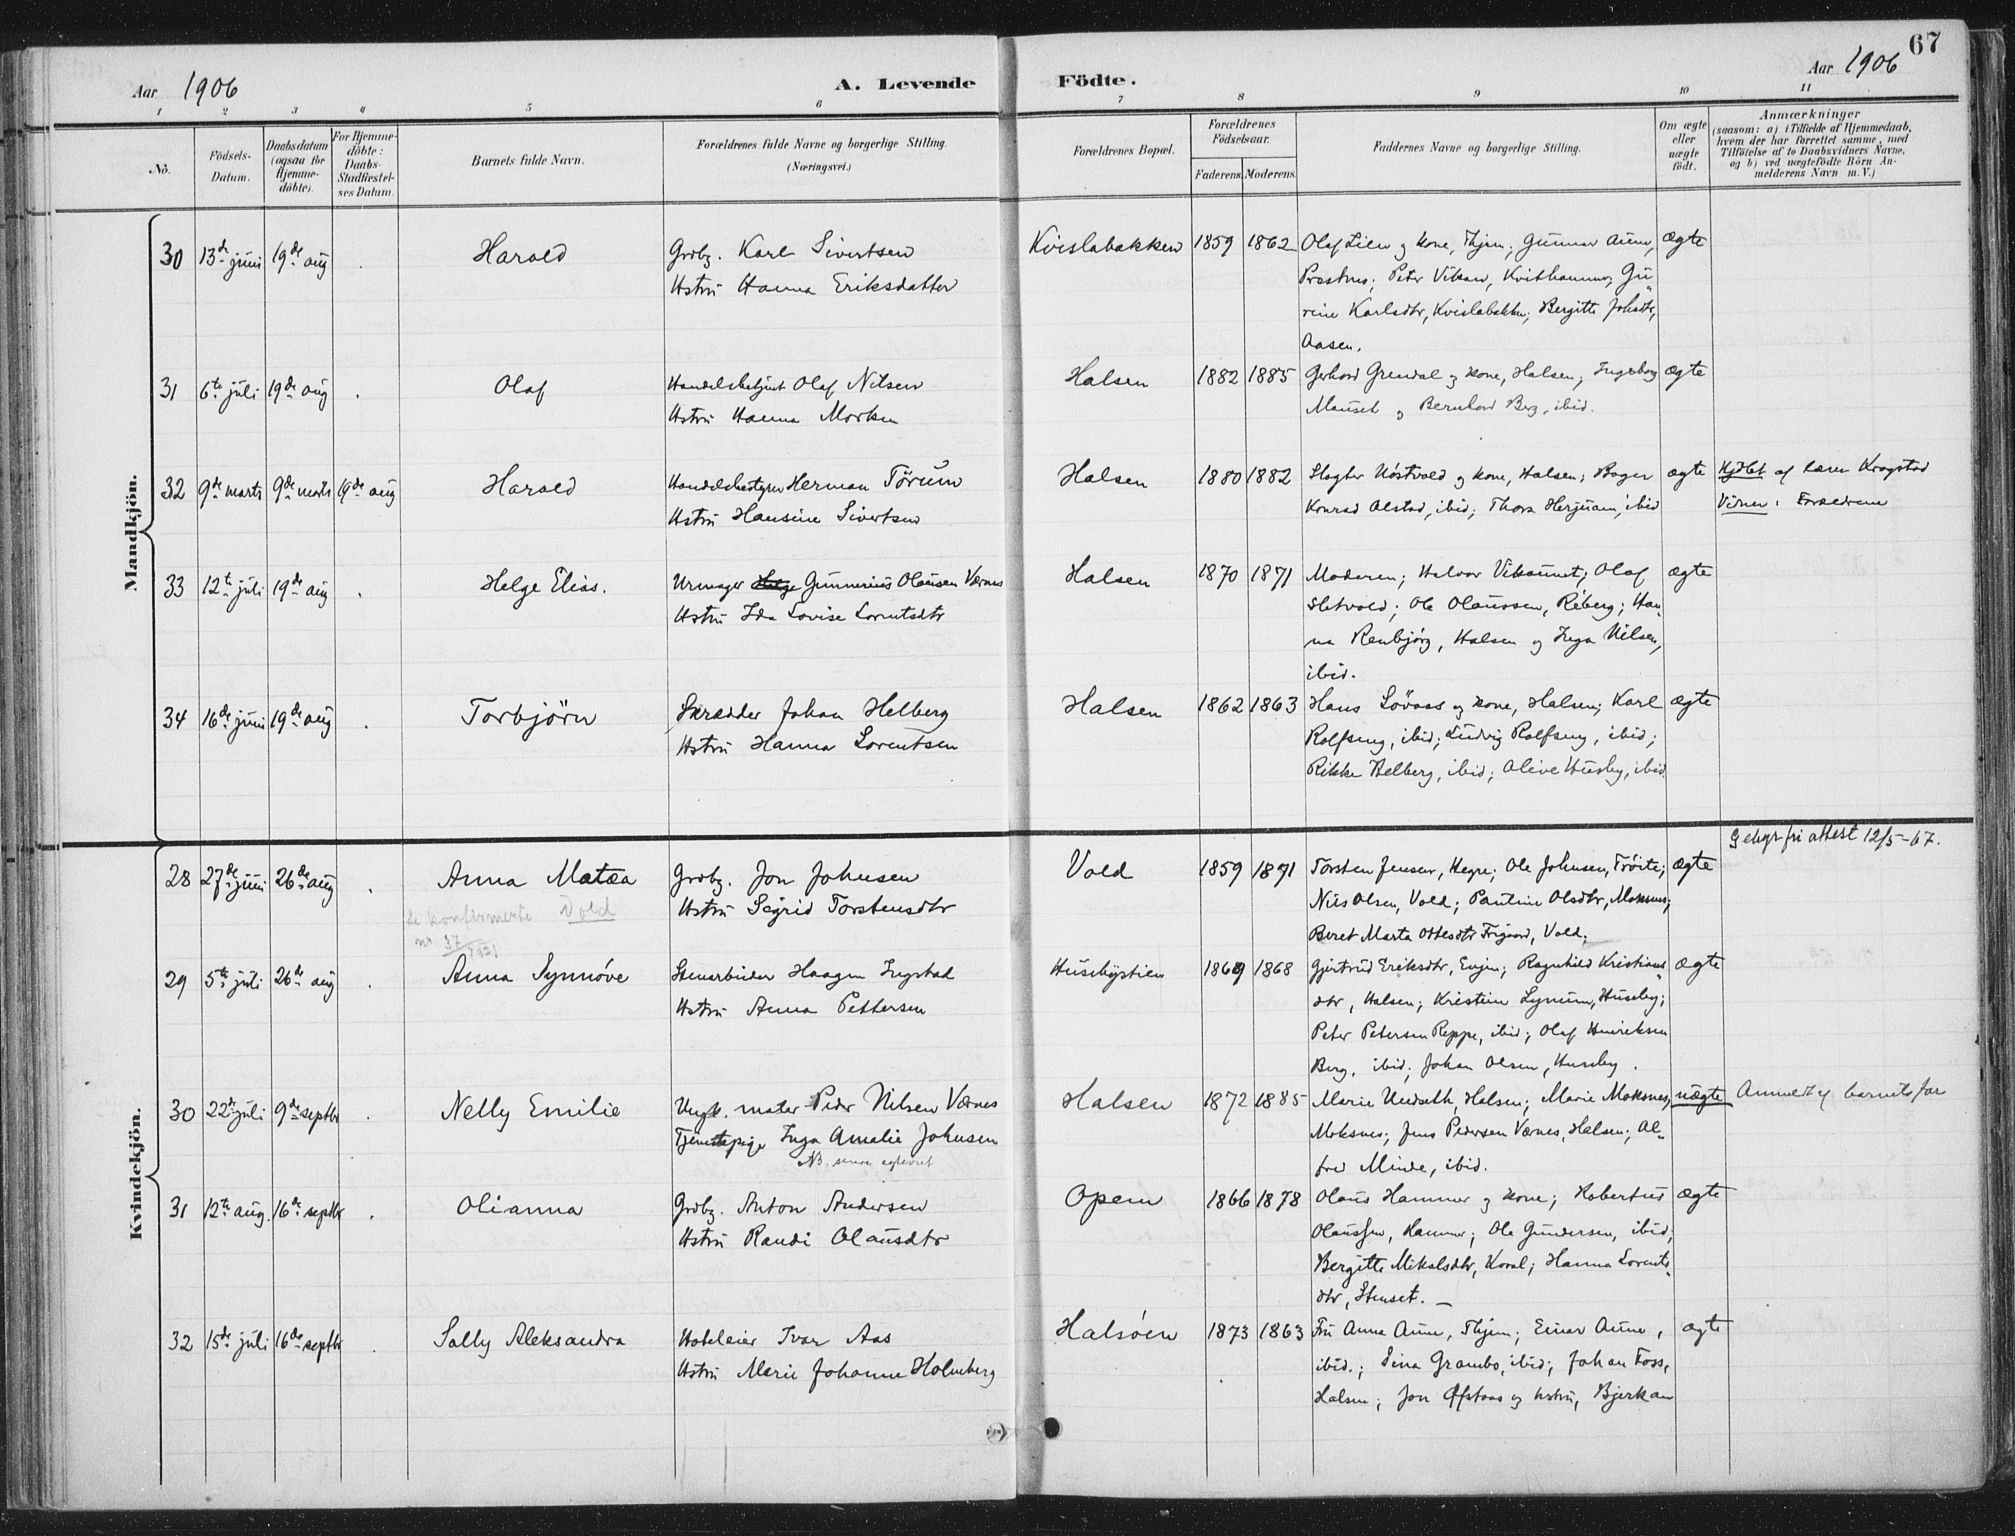 67
Aar 1906
A. Levende Födte.
Aar 1906
1 2 3 4 5 6 7 8 9 10 11
No.
Födsels-
Datum.
Daabsdatum
(ogsaa for
Hjemme-
döbte).
For Hjemme-
döbte:
Daabs-
Stadfæstel-
ses Datum.
Barnets fulde Navn.
Forældrenes fulde Navne og borgerlige Stilling
(Næringsvei.)
Forældrenes Bopæl.
Forældrenes
Födselsaar.
Faderens. Moderens.
Faddernes Navne og borgerlige Stilling.
Om ægte
eller
uægte
födt.
Anmærkninger
(saasom: a) i Tilfælde af Hjemmedaab,
hvem der har forrettet samme, med
Tilföielse af to Daabsvidners Navne.
og b) ved uægtefödte Börn An-
melderens Navn m. V.)
Mandkjön.
30 13de juni 19de aug . Harald Grdbr. Karl Sivertsen Kvislabakken 1859 1862 Olaf Lien og kone, Thjem; Gunnar Aune, ægte
Hstru Hanna Eriksdatter Præstmo; Peter Vikan, Kvithammer, Gu-
rine Karlsdtr, Kvislabakken; Bergitte Johsdtr,
Aasen.
31 6te juli 19de aug . Olaf Handelsbetjent Olaf Nilsen Halsen 1882 1885 Gerhard Grendal og kone, Halsen; Ingeborg ægte
Hstru Hanna Morken Mauset og Bernhard Berg, ibid.
32 9de marts 9de marts 19de aug Harald Handelsbestyrer Herman Törum Halsen 1880 1882 Slagter Nöstvold og kone, Halsen; Bager ægte Hjdbt af lærer Kragstad
Hstru Hansine Sivertsen Konrad Alstad, ibid; Thora Herjuam, ibid Vidner: Forældrene
33 12te juli 19de aug . Helge Elias. Urmager Gunnerius Olausen Værnes Halsen 1870 1871 Moderen; Halvor Vikaunet; Olaf ægte
Hstru Ida Lovise Lorntsdtr Sletvold; Ole Olaussen, Reberg; Han-
na Renbjörg, Halsen og Inga Nilsen,
ibid.
34 16de juni 19de aug . Torbjörn Skrædder Johan Helberg Halsen 1862 1863 Hans Lövaas og kone, Halsen; Karl ægte
Hstru Hanna Lorentsen Rolfseng, ibid; Ludvig Rolfseng, ibid;
Rikke Helberg, ibid; Olive Husby, ibid
Kvindekjön.
Gebyrfri attest 12/5-67.
28 27de juni 26de aug . Anna Matea Grdbr. Jon Johnsen Vold 1859 1871 Torsten Jensen, Hegre; Ole Johnsen, Tröite; ægte
Se konfirmerte Vold
nr 37/1921
Hstru Sigrid Torstensdtr Nils Olsen, Vold; Pauline Olsdtr, Moksnes;
Beret Marta Ottesdtr Frigaard, Vold;
29 5te juli 26de aug . Anna Synnöve Stenarbeider Haagen Ingstad Husebystien 1869 1868 Gjertrud Eriksdtr, Evjen; Ragnhild Kristians- ægte
Hstru Anna Pettersen dtr, Halsen; Kristine Lynum, Huseby;
Peter Petersen Reppe, ibid; Olaf Henriksen
Berg, ibid; Johan Olsen, Huseby.
30 22de juli 9de septbr . Nelly Emilie Ungk. maler Peder Nilsen Værnes Halsen 1872 1885 Marie Undseth, Halsen; Marie Moksnes, uægte Anmeldt af barnets far
Tjenestepige Inga Amalie Johnsen Moksnes; Jens Pedersen Værnes, Halsen; Al-
NB. senere egteviet
fred Minde, ibid.
31 12te aug. 16de septbr . Olianna Grdbr. Anton Andersen Opem 1866 1878 Olaus Hammer og kone; Hobertus ægte
Hstru Randi Olausdtr Olaussen, Hammer; Ole Gundersen, ibid;
Bergitte Mikalsdtr, Koral; Hanna Lorents-
dtr, Stenset. —
32 15de juli 16de septbr . Sally Aleksandra Hoteleier Ivar Aas Halsöen 1873 1863 Fru Anna Aune, Thjem; Einar Aune, ægte
Hstru Marie Johanne Holmberg ibid.; Sina Grambo, ibid; Johan Foss,
Halsen; Jon Öfstaas og hstru, Bjerkan